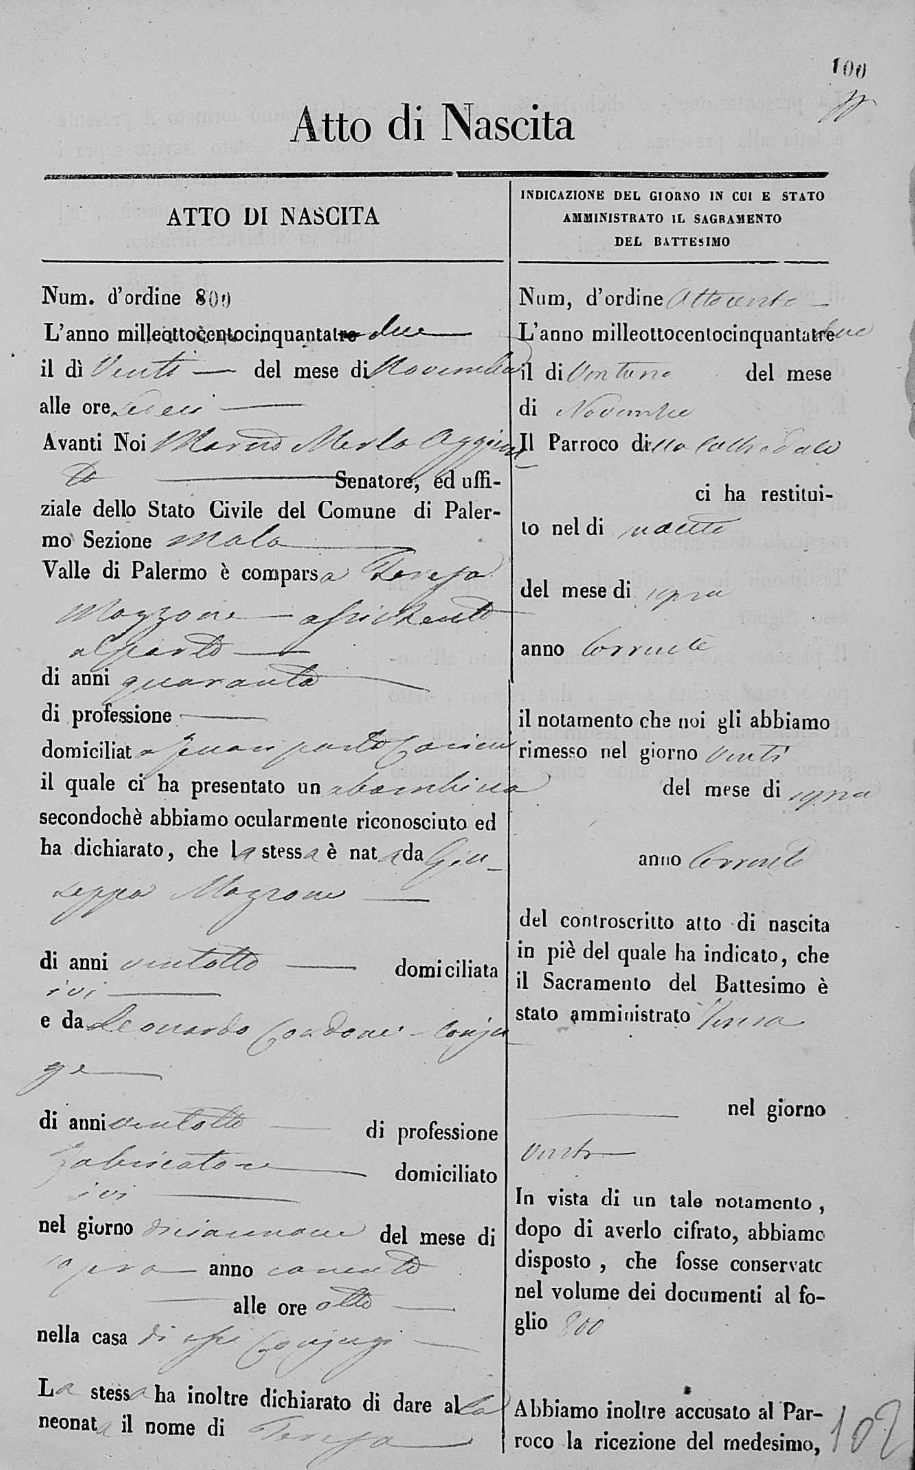 100
Atto di Nascita
ATTO DI NASCITA
Num. d'ordine 800
L'anno milleottocentocinquantatre due
il dì Venti del mese di Novembre
alle ore sedici
Avanti Noi Marco Merlo Aggiun
to Senatore, ed uffi-
ziale dello Stato Civile del Comune di Paler-
mo Sezione Molo
Valle di Palermo è comparsa Teresa
Mazzone assistente
al parto
di anni quaranta
di professione
domiciliata fuori porta Carini
il quale ci ha presentato una bambina
secondochè abbiamo ocularmente riconosciuto ed
ha dichiarato, che la stessa è nata da Giu-
seppa Mazzone
di anni ventotto domiciliata
ivi
e da Leonardo Cardone conju
ge
di anni ventotto di professione
fabricatore domiciliato
ivi
nel giorno diciannove del mese di
sopra anno corrente
alle ore otto
nella casa di essi Conjugi
La stessa ha inoltre dichiarato di dare alla
neonata il nome di Teresa
INDICAZIONE DEL GIORNO IN CUI E STATO
AMMINISTRATO IL SAGRAMENTO
DEL BATTESIMO
Num, d'ordine Ottocento
L'anno milleottocentocinquantatre due
il di Ventuno del mese
di Novembre
Il Parroco della Cattedrale
ci ha restitui-
to nel di
del mese di sopra
anno Corrente
il notamento che noi gli abbiamo
rimesso nel giorno Venti
del mese di sopra
anno Corrente
del controscritto atto di nascita
in piè del quale ha indicato, che
il Sacramento del Battesimo è
stato amministrato
nel giorno
Venti
In vista di un tale notamento,
dopo di averlo cifrato, abbiamo
disposto, che fosse conservato
nel volume dei documenti al fo-
glio 800
Abbiamo inoltre accusato al Par-
roco la ricezione del medesimo,
102